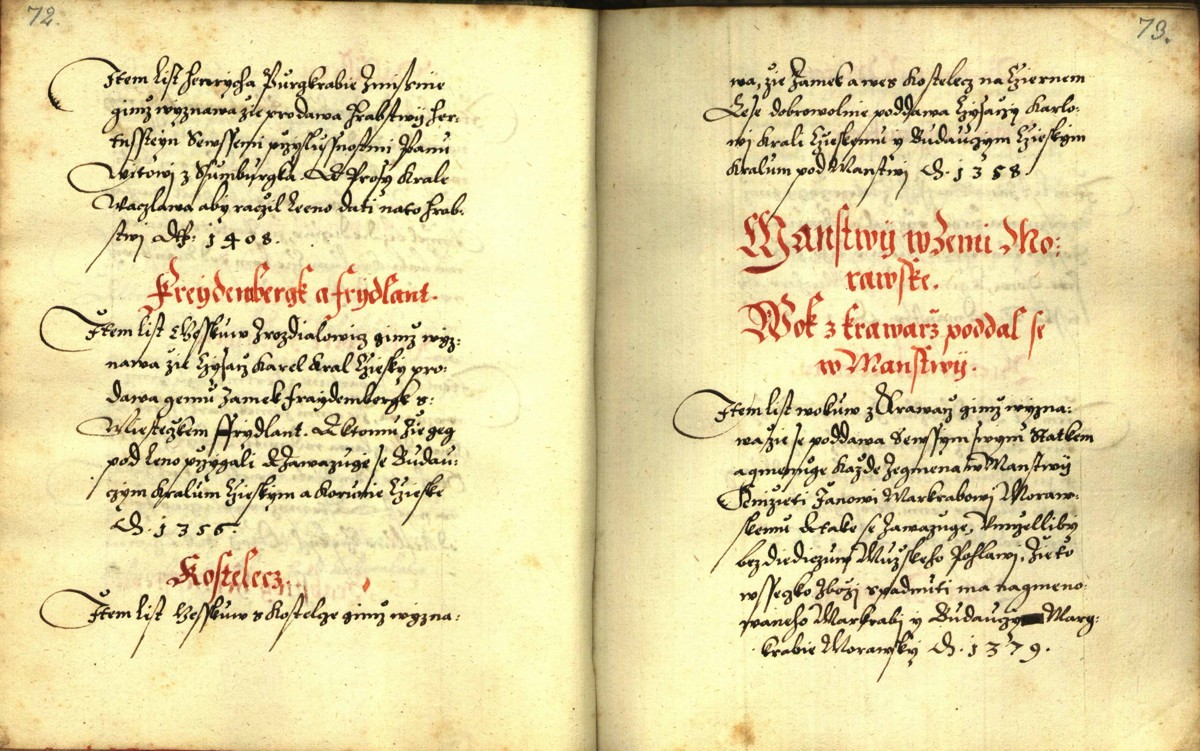 72.
Item list Henrycha Purgkrabie z missnie
gimz wyznawa zie prodawa Hrabstwij Her:
tnssteyn Sewssemi przyslussnostmi Panu
Wytowi z Ssumburgka. A Prosy Krale
Waczlawa aby raczil Leeno dati nato Hrab:
stwj 1408.
Freydenbergk a frydlant.
Item list Gesskuw Zrozdialowicz gimz wyz:
nawa zie Czysarz Karel Kral Czesky pro:
dawa gemu Zamek fraydembergk s:
Miesteczkem Ffrydlant. A ktomu zie geg
pod Leno przygali A Zawazuge se Budau:
czym Kralum Czieskym a Korunie Czieske
A. 1356.
Kostelecz.
Item list Gesskuw s Kostelcze gimz wyzna:
73.
wa, zie Zamek a wes Kostelecz na Cziernem
Lese dobrowolnie poddawa Czysarzy Karlo:
wi Krali Czieskemu y Budauczym Czieskym
Kralum pod Manstwj A. 1358.
Manstwij w Zemi Mo:
rawske.
Wok z krawarz poddal se
w Manstwij.
Item list wokuw z Krawarz gimz wyzna:
wa zie se poddawa Sewssym swym Statkem
a gmenuge Kazde Zegmena w Manstwij
Knizieti Janowi Markrabowj Moraw:
skemu A take se Zawazuge, Umrzelliby
bez diediczuw Muzskeho Pohlawj, Zie to
wssecko Zbozi spadnuti ma na gmeno:
waneho Markrabj y Budauczy Marg:
krabie Morawsky A. 1379.